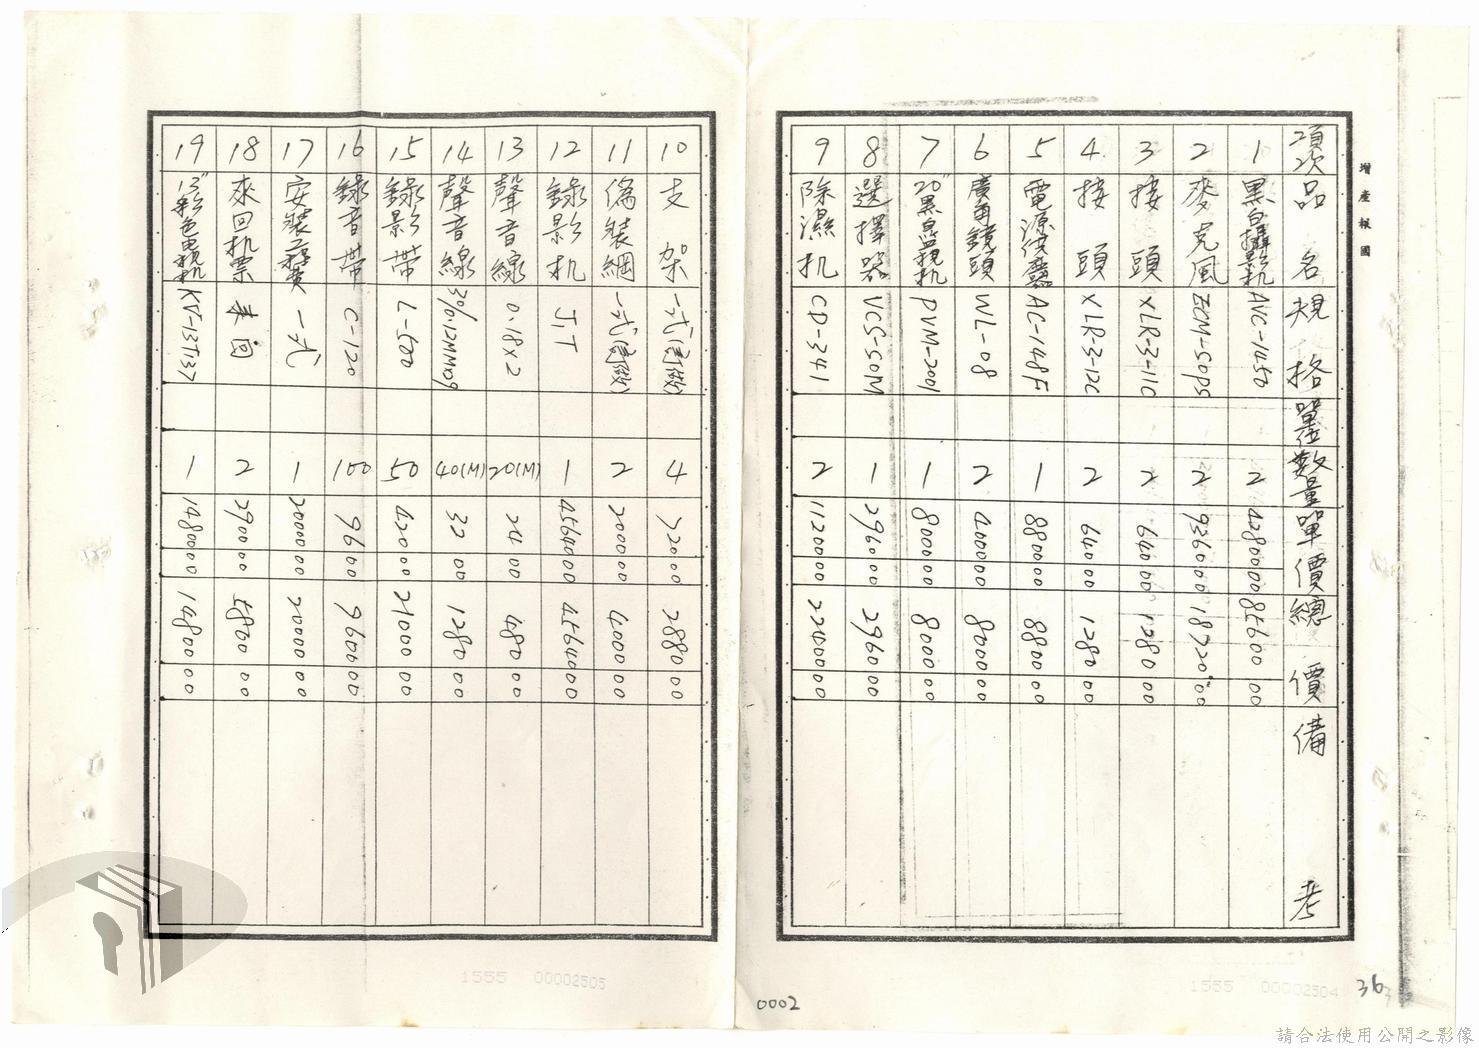 增產報國
項次 品名 規格 單位 數量 單價 總價 備考
1 黑白攝影机 AVC-1450 2 42800 00 85600 00
2 麥克風 ECM-50PS 2 9360 00 18720 00
3 接頭 XLR-3-11C 2 640 00 1280 00
4 接頭 XLR-3-12C 2 640 00 1280 00
5 電源 AC-148F 1 8800 00 8800 00
6 廣角鏡頭 WL-08 2 4000 00 8000 00
7 20"黑白監視机 PVM-2001 1 8000 00 8000 00
8 選擇器 VCS-50M 1 2960 00 2960 00
9 除濕机 CD-341 2 11200 00 22400 00
10 支架 一式(訂做) 4 720 00 2880 00
11 偽裝網 一式(訂做) 2 2000 00 4000 00
12 錄影机 J,T 1 45640 00 45640 00
13 聲音線 0.18×2 20(M) 24 00 480 00
14 聲音線 30/0.12MM09 40(M) 32 00 1280 00
15 錄影帶 L-500 50 420 00 21000 00
16 錄音帶 C-120 100 96 00 9600 00
17 安裝工程費 一式 1 20000 00 20000 00
18 來回机票 來回 2 2900 00 5800 00
19 13"彩色電視机 KV-13T137 1 14800 00 14800 00
1555 00002505
0002
1555 00002504
36
請合法使用公開之影像